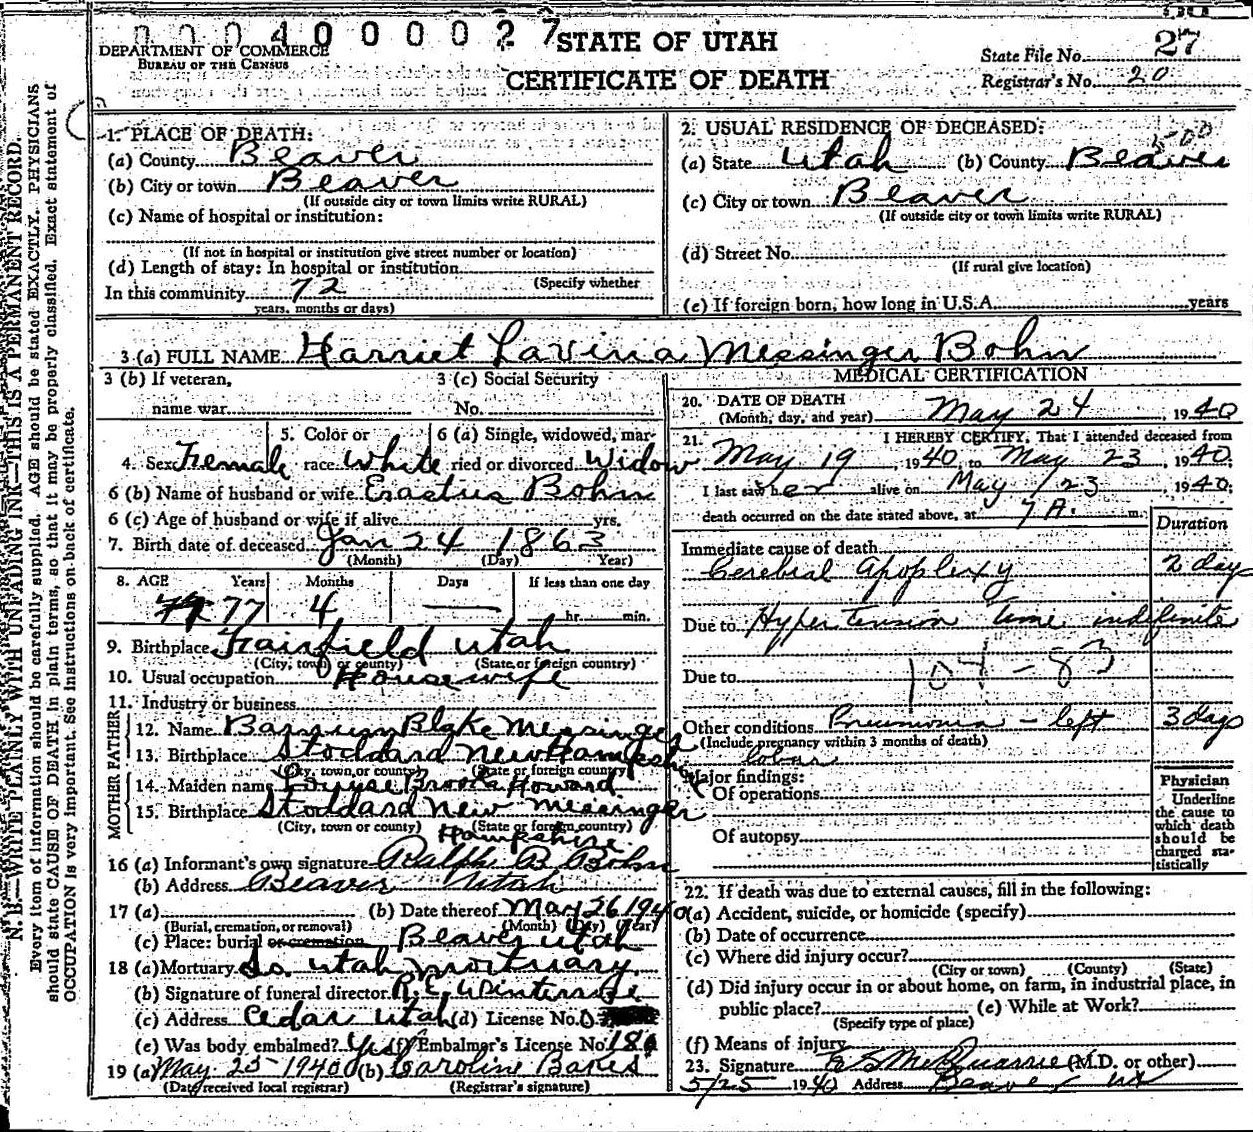 0 0 0 4 0 0 0 0 2 7
DEPARTMENT OF COMMERCE
BUREAU OF THE CENSUS
STATE OF UTAH
CERTIFICATE OF DEATH
State File No. 27
Registrar's No. 20
N. B.—WRITE PLAINLY WITH UNFADING INK—THIS IS A PERMANENT RECORD.
Every item of information should be carefully supplied. AGE should be stated EXACTLY. PHYSICIANS
should state CAUSE OF DEATH in plain terms, so that it may be properly classified. Exact statement of
OCCUPATION is very important. See instructions on back of certificate.
1. PLACE OF DEATH:
(a) County Beaver
(b) City or town Beaver
(If outside city or town limits write RURAL)
(c) Name of hospital or institution:
(If not in hospital or institution give street number or location)
(d) Length of stay: In hospital or institution
(Specify whether
In this community 72
years, months or days)
2. USUAL RESIDENCE OF DECEASED:
500
(a) State Utah (b) County Beaver
(c) City or town Beaver
(If outside city or town limits write RURAL)
(d) Street No.
(If rural give location)
(e) If foreign born, how long in U.S.A. years
3 (a) FULL NAME Harriet Lavina Messinger Bohn
3 (b) If veteran,
name war
3 (c) Social Security
No.
4. Sex Female
5. Color or
race White
6 (a) Single, widowed, mar-
ried or divorced Widow
6 (b) Name of husband or wife Erastus Bohn
6 (c) Age of husband or wife if alive yrs.
7. Birth date of deceased Jan 24 1863
(Month) (Day) Year)
8. AGE Years Months Days If less than one day
77 4 — hr. min.
9. Birthplace Fairfield Utah
(City, town or county) (State or foreign country)
10. Usual occupation Housewife
11. Industry or business
FATHER
12. Name Blake Messinger
13. Birthplace Stoddard New Hampshire
(City, town, or county) (State or foreign country)
MOTHER
14. Maiden name Louyse Brooks Howard
15. Birthplace Stoddard New Messinger
(City, town or county) (State or foreign country)
Hampshire
16 (a) Informant's own signature Ralph B Bohn
(b) Address Beaver Utah
17 (a) (b) Date thereof May 26 1940
(Burial, cremation, or removal) (Month) (Day) Year)
(c) Place: burial or cremation Beaver Utah
18 (a) Mortuary So. Utah Mortuary
(b) Signature of funeral director R. E.
(c) Address Cedar Utah (d) License No.
(e) Was body embalmed? Yes (f) Embalmer's License No. 180
19 (a) May 25-1940 (b) Caroline
(Date received local registrar) (Registrar's signature)
MEDICAL CERTIFICATION
20. DATE OF DEATH
(Month, day, and year) May 24, 1940
21. I HEREBY CERTIFY, That I attended deceased from
May 19, 1940 to May 23, 1940;
I last saw her alive on May 23, 1940;
death occurred on the date stated above, at 7 A. m.
Duration
Immediate cause of death
Cerebral apoplexy 2 days
Due to Hypertension time indefinite
Due to 104-83
Other conditions Pneumonia - left 3 days
(Include pregnancy within 3 months of death)
lobar
Major findings:
Of operations
Of autopsy
Physician
Underline
the cause to
which death
should be
charged sta-
tistically
22. If death was due to external causes, fill in the following:
(a) Accident, suicide, or homicide (specify)
(b) Date of occurrence
(c) Where did injury occur?
(City or town) (County) (State)
(d) Did injury occur in or about home, on farm, in industrial place, in
public place? (e) While at Work?
(Specify type of place)
(f) Means of injury
23. Signature McQuarrie (M.D. or other)
5/25 1940 Address Beaver Ut